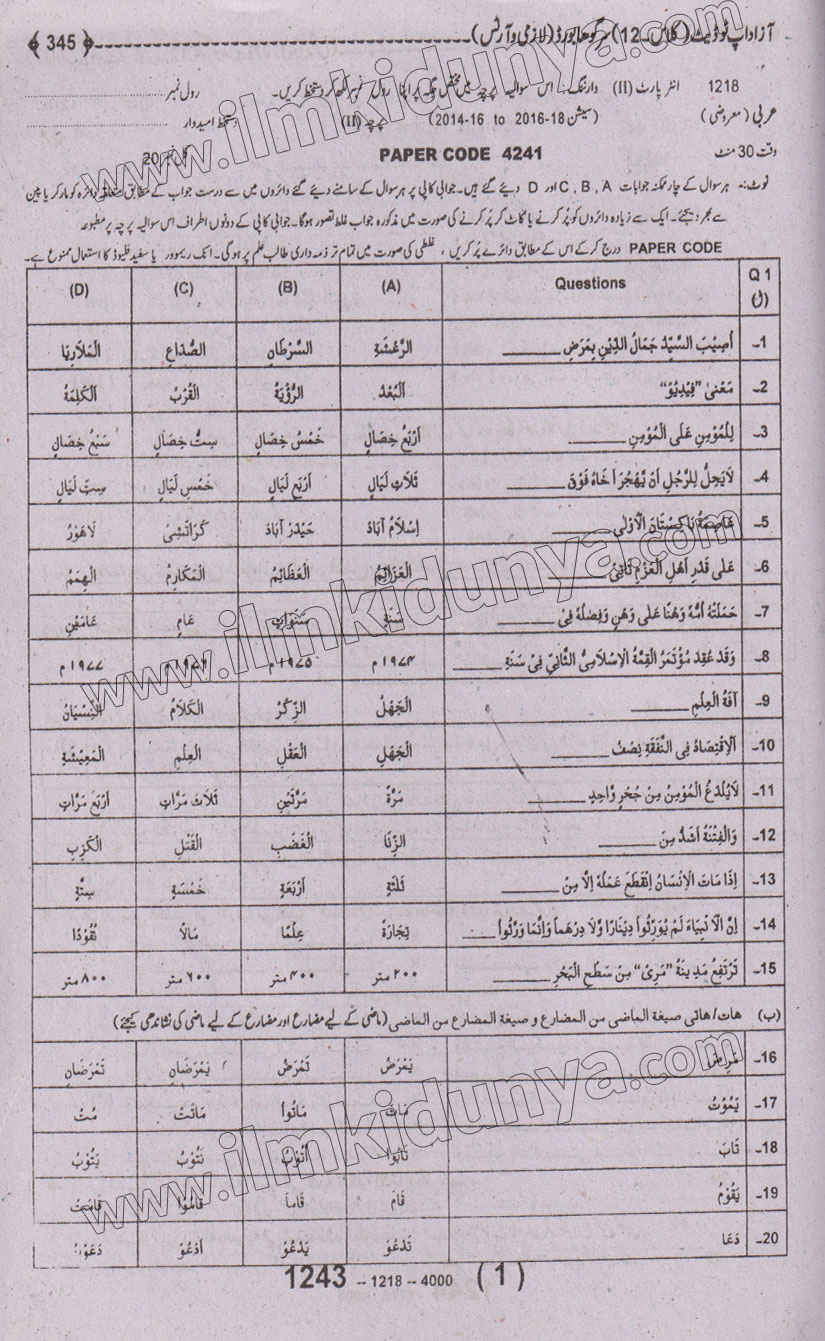 آزاد اپ ٹو ڈیٹ (کلاس۔12) سرگودھا بورڈ (لازمی و آرٹس) ﴾ 345 ﴿
1218 انٹر پارٹ (II) وارننگ:۔ اس سوالیہ پرچہ میں مختص جگہ پر اپنا رول نمبر لکھ کر دستخط کریں۔ رول نمبر
عربی (معروضی) (سیشن 18-2016 to 16-2014) پرچہ (II) دستخط امیدوار
وقت 30 منٹ PAPER CODE 4241 کل نمبر 20
نوٹ:۔ ہر سوال کے چار ممکنہ جوابات C , B , A اور D دیئے گئے ہیں۔ جوابی کاپی پر ہر سوال کے سامنے دیئے گئے دائروں میں سے درست جواب کے مطابق متعلقہ دائرہ کو مارکر یا پین
سے بھر دیجئے۔ ایک سے زیادہ دائروں کو پُر کرنے یا کاٹ کر پُر کرنے کی صورت میں مذکورہ جواب غلط تصور ہوگا۔ جوابی کاپی کے دونوں اطراف اس سوالیہ پرچہ پر مطبوعہ
PAPER CODE درج کر کے اس کے مطابق دائرے پُر کریں ، غلطی کی صورت میں تمام تر ذمہ داری طالب علم پر ہوگی۔ انک ریموور یا سفید فلیوڈ کا استعمال ممنوع ہے۔
Q 1 (ل) Questions (A) (B) (C) (D)
1۔ اُصِیْبَ السَّیِّدُ جَمَالُ الدِّیْنِ بِمَرَضِ ______ الرَّعْشَةِ السَّرْطَانِ الصُّدَاعِ الْمَلَارِیَا
2۔ مَعْنٰی ”فِیْدِیُوْ“ اَلْبُعْدُ الرُّؤْیَةُ الْقُرْبُ اَلْکَلِمَةُ
3۔ لِلْمُؤْمِنِ عَلَی الْمُؤْمِنِ ______ اَرْبَعُ خِصَالٍ خَمْسُ خِصَالٍ سِتُّ خِصَالٍ سَبْعُ خِصَالٍ
4۔ لَا یَحِلُّ لِلرَّجُلِ اَنْ یَّهْجُرَ اَخَاهُ فَوْقَ ثَلَاثِ لَیَالٍ اَرْبَعِ لَیَالٍ خَمْسِ لَیَالٍ سِتِّ لَیَالٍ
5۔ عَاصِمَةُ بَاکِسْتَانَ الْاُوْلٰی ______ اِسْلَامْ اٰبَادْ حَیْدَرْ اٰبَادْ کَرَاتَشِیْ لَاهَوْرُ
6۔ عَلٰی قَدْرِ اَهْلِ الْعَزْمِ تَاْتِیْ ______ الْعَزَائِمُ الْعَظَائِمُ الْمَکَارِمُ الْهِمَمُ
7۔ حَمَلَتْهُ اُمُّهٗ وَهْنًا عَلٰی وَهْنٍ وَفِصٰلُهٗ فِیْ ______ سَنَةٍ سَنَوَاتٍ عَامٍ عَامَیْنِ
8۔ وَقَدْ عُقِدَ مُؤْتَمَرُ الْقِمَّةِ الْاِسْلَامِیُّ الثَّانِیْ فِیْ سَنَةِ ______ ۱۹۷۴م ۱۹۷۵م ۱۹۷۶م ۱۹۷۷م
9۔ اٰفَةُ الْعِلْمِ ______ الْجَهْلُ الذِّکْرُ الْکَلَامُ النِّسْیَانُ
10۔ اَلْاِقْتِصَادُ فِی النَّفَقَةِ نِصْفُ ______ الْجَهْلِ الْعَقْلِ الْعِلْمِ الْمَعِیْشَةِ
11۔ لَا یُلْدَغُ الْمُؤْمِنُ مِنْ جُحْرٍ وَّاحِدٍ ______ مَرَّةً مَرَّتَیْنِ ثَلَاثَ مَرَّاتٍ اَرْبَعَ مَرَّاتٍ
12۔ وَالْفِتْنَةُ اَشَدُّ مِنَ ______ الزِّنَا الْغَضَبِ الْقَتْلِ الْکَرْبِ
13۔ اِذَا مَاتَ الْاِنْسَانُ اِنْقَطَعَ عَمَلُهٗ اِلَّا مِنْ ______ ثَلٰثَةٍ اَرْبَعَةٍ خَمْسَةٍ سِتَّةٍ
14۔ اِنَّ الْاَنْبِیَاءَ لَمْ یُوَرِّثُوْا دِیْنَارًا وَّلَا دِرْهَماً وَاِنَّمَا وَرَّثُوْا ___ تِجَارَةً عِلْمًا مَالًا نُقُوْدًا
15۔ تَرْتَفِعُ مَدِیْنَةُ ”مَرِیْ“ مِنْ سَطْحِ الْبَحْرِ ______ ۲۰۰ متر ۴۰۰ متر ۶۰۰ متر ۸۰۰ متر
(ب) هات/هاتی صیغة الماضی من المضارع و صیغة المضارع من الماضی (ماضی کے لیے مضارع اور مضارع کے لیے ماضی کی نشاندہی کیجئے)
16۔ مَرِضَ یَمْرَضُ تَمْرَضُ یَمْرَضَانِ تَمْرَضَانِ
17۔ یَمُوْتُ مَاتَ مَاتُوْا مَاتَتْ مُتُّ
18۔ تَابَ تَابُوْا اَتُوْبُ نَتُوْبُ یَتُوْبُ
19۔ یَقُوْمُ قَامَ قَامَا قَامُوْا قَامَتْ
20۔ دَعَا تَدْعُوْ یَدْعُوْ اَدْعُوْ دَعَوْا
1243 -- 1218 -- 4000 ( 1 )
www.ilmkidunya.com
www.ilmkidunya.com
www.ilmkidunya.com
www.ilmkidunya.com